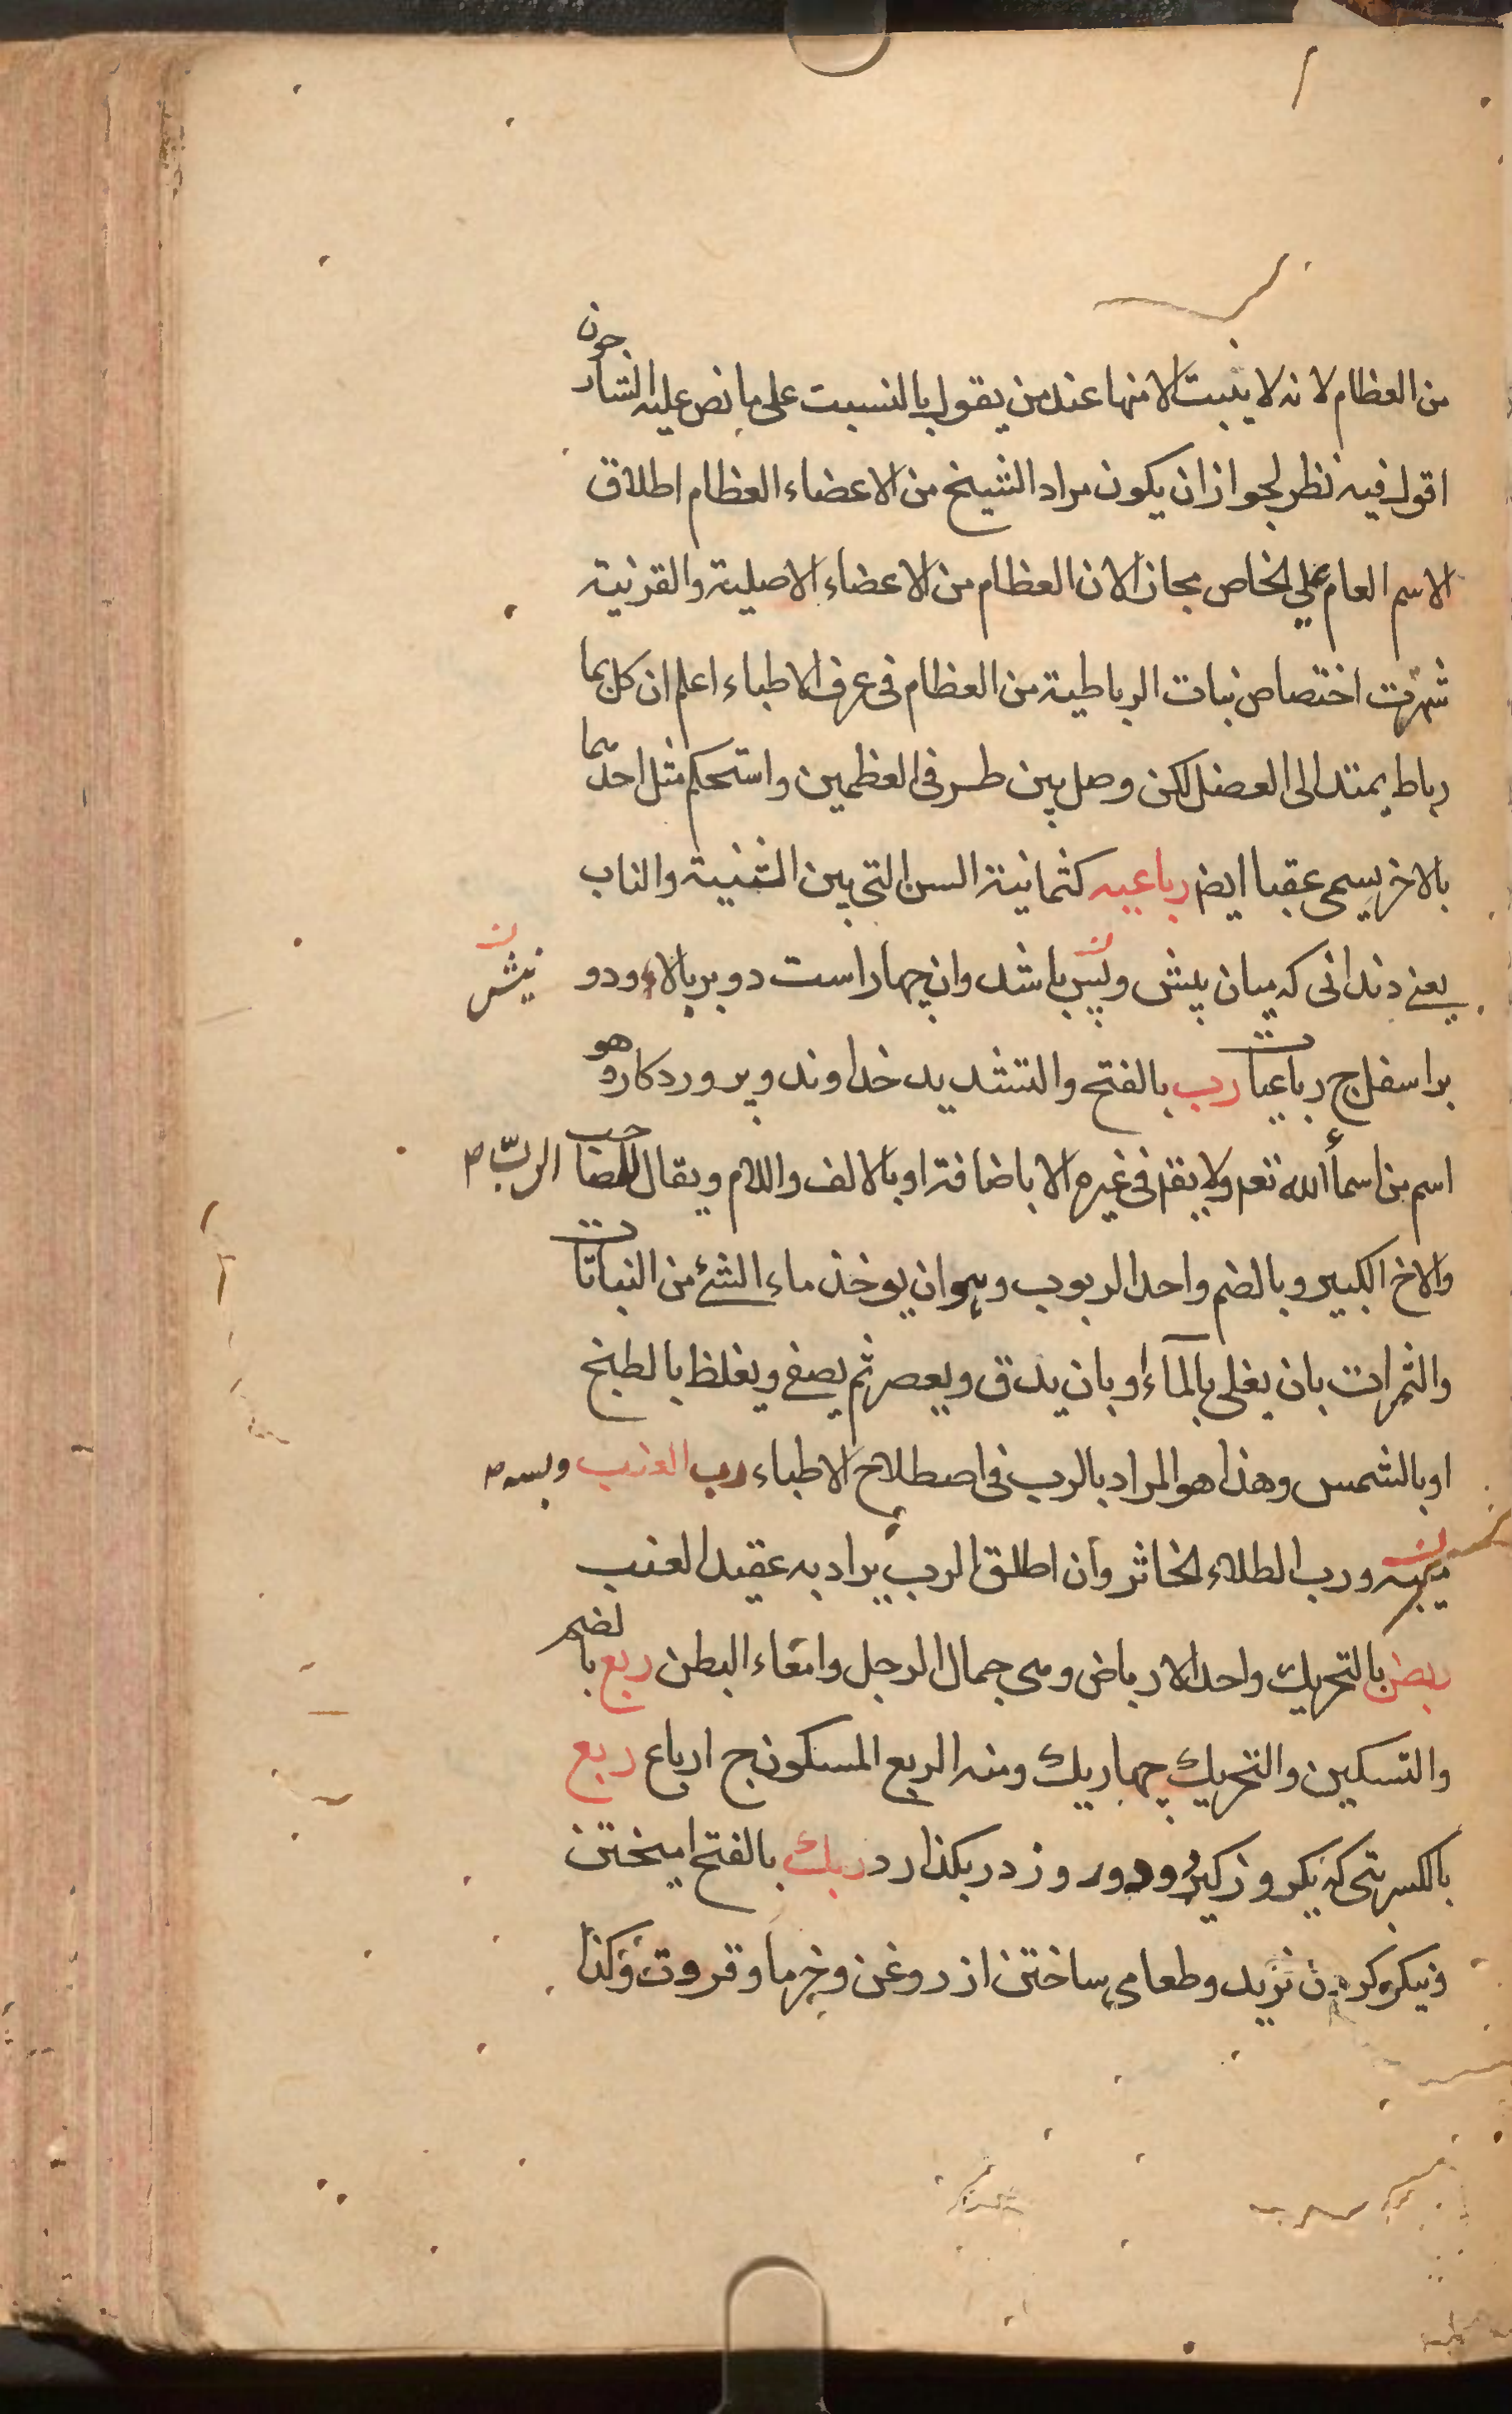 من العظام لانه لا ينبت الا منها عند من يقول بالنسبت على ما نص عليه الشارحون
اقول فيه نظر لجواز ان يكون مراد الشيخ من الاعضاء العظام اطلاق
الاسم العام على الخاص مجازا لان العظام من الاعضاء الاصلية والقرنية
شهرت اختصاص نبات الرباطية من العظام فى عرف الاطباء اعلم ان كل ما
رباط يمتد الى العضل لكن وصل بين طرفى العظمين واستحكم مثل احدهما
بالاخر يسمى عقبا ايض رباعيه كثمانية السن التى بين الثنية والناب
يعنے دندانى كه ميان پيش و باشد وان چهار است دو بر بالا ودو
نيش
بر اسفل ج رباعيات رب بالفتح والتشديد خداوند وپروردكار وهو
اسم من اسماء الله تعم ولا يقم فى غيره الا باضافة او بالالف واللام ويقال لصاحب
الربّ
والاخ الكبير وبالضم واحد الربوب وهو ان يوخذ ماء الشئ من النباتات
والثمرات بان يغلى بالماء او بان يدق ويعصر ثم يصفى ويغلظ بالطبخ
او بالشمس وهذا هو المراد بالرب فى اصطلاح الاطباء رب العنب
ورب الطلاء الخاثر وان اطلق الرب يراد به عقيد العنب
ربض بالتحريك واحد الارباض وهى حمال الرحل وامعاء البطن ربع بالضم
والتسكين والتحريك چهاريك ومنه الربع المسكون ج ارباع ربع
بالكسر تپى كه يكروز كيرد ودو روز در بكذارد ربك بالفتح اميختن
ونيكو كردن ثريد وطعامى ساختن از روغن وخرما وقروت وكذا